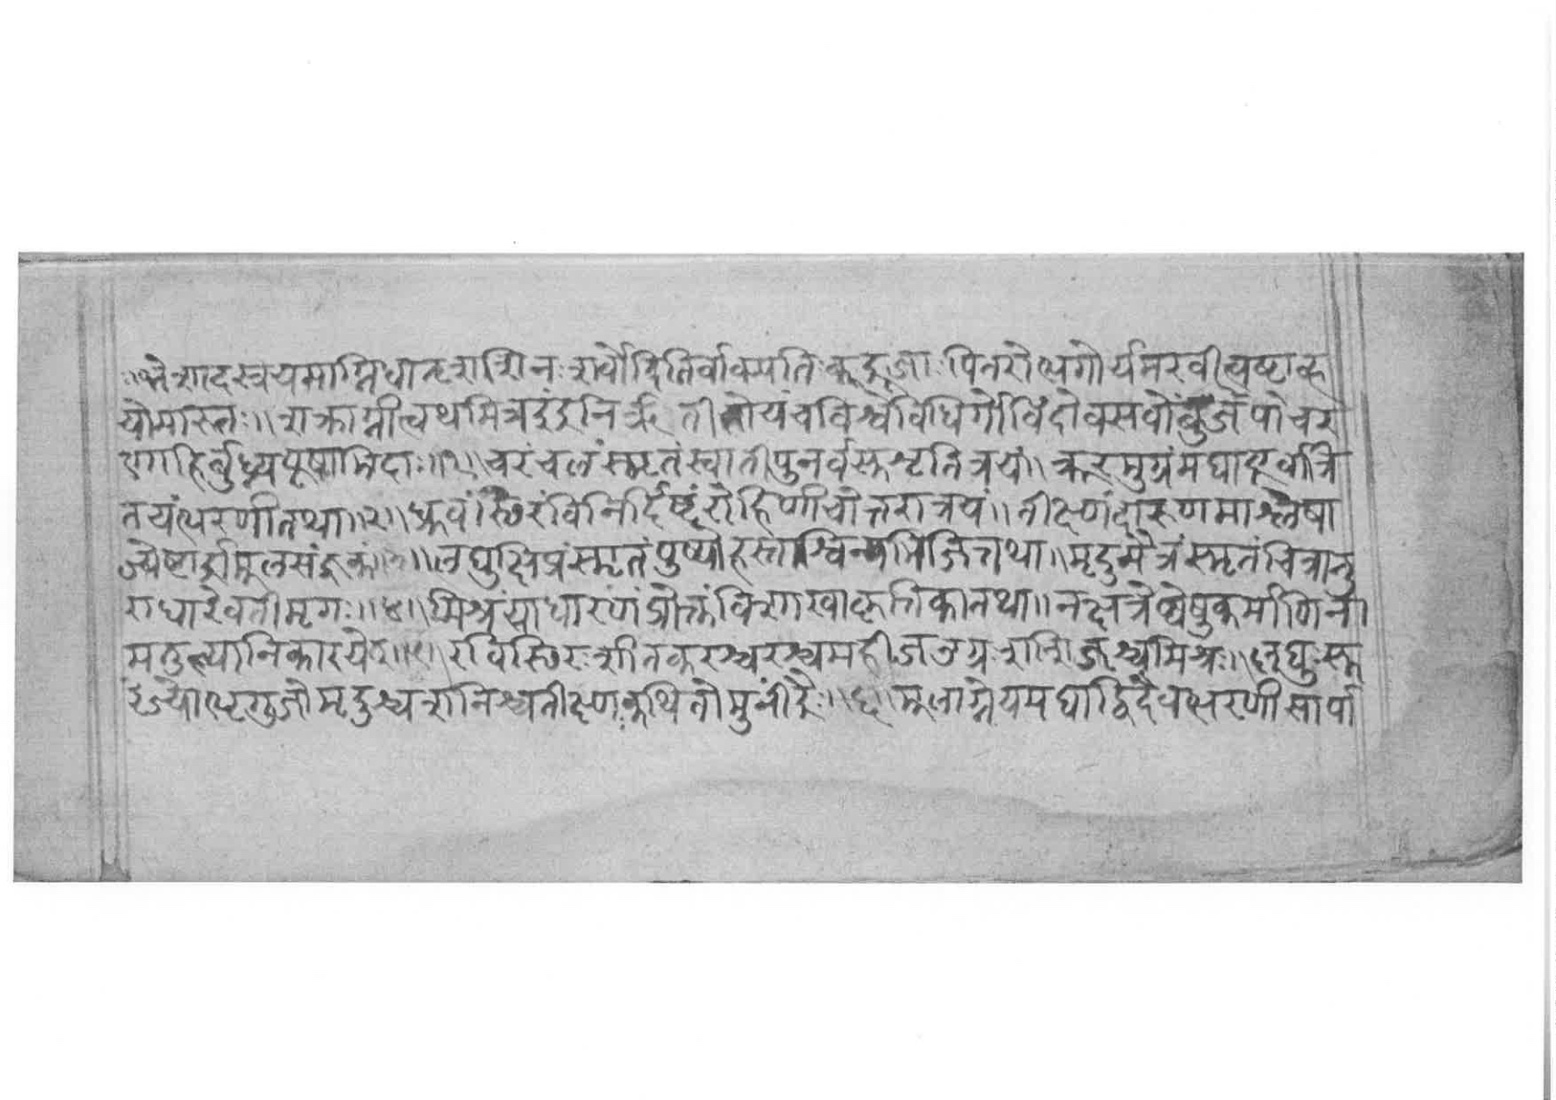 ॥भेशादस्त्रयमाग्निधातृशशिनःशर्वोदितिर्वाक्पतिःकद्रूजाःपितरोत्थगोर्यमरवीत्वष्टाह्व
योमारुतः॥शक्राग्नीत्वथमित्रइंद्रनिरृतीतोयंचविश्वेविधिर्गोविंदोवसवोंबुजेपोचर
एगाहिर्बुध्न्यपूषाभिदाः॥१॥चरंचलंस्मृतंस्वातीपुनर्वसुश्रुतित्रयं॥क्रूरमुग्रंमघापूर्वात्रि
तयंभरणीतथा॥२॥ध्रुवंस्थिरंविनिर्दिष्टंरोहिणीचोत्तरात्रयं॥तीक्ष्णंदारुणमाश्लेषा
ज्येष्टार्द्रामूलसंज्ञकं॥३॥लघुक्षिप्रंस्मृतंपुष्योहस्ताश्विन्यभिजित्तथा॥मृदुमैत्रंस्मृतंचित्रानु
राधारेवतीमृगः॥४॥मिश्रंसाधारणंप्रोक्तंविशाखाकृत्तिकातथा॥नक्षत्रेष्वेषुकर्माणिना
मतुल्यानिकारयेत्॥५॥रविस्थिरःशीतकरश्चरश्चमहीजउग्रःशशिजश्चमिश्रः॥लघुःसु
रेज्योभृगुजोमृदुश्चशनिश्चतीक्ष्णःकथितोमुनींद्रैः॥६॥मूलाग्नेयमघाद्विदैवभरणीसार्पा